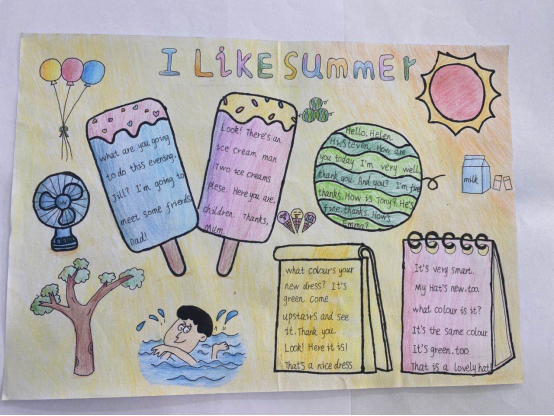 I LIKE SUMMER
what are you going
to do this evening.
Jill? I'm going to
meet some friends
Dad!
Look! There's an
ice cream man
Two ice creams
plese. Here you are.
children. Thanks,
Mum
Hello, Helen.
Hi Steven. How are
you today I'm very well
thank you. And you? I'm fine
thanks. How is Tony? He's
fine, thanks. How's
Emma?
milk
what colour's your
new dress? It's
green. come
upstairs and see
it. Thank you
Look! Here it is!
That's a nice dress
It's very smart.
My Hat's new. too.
what colour is it?
It's the same colour
It's green. too
That is a lovely hat